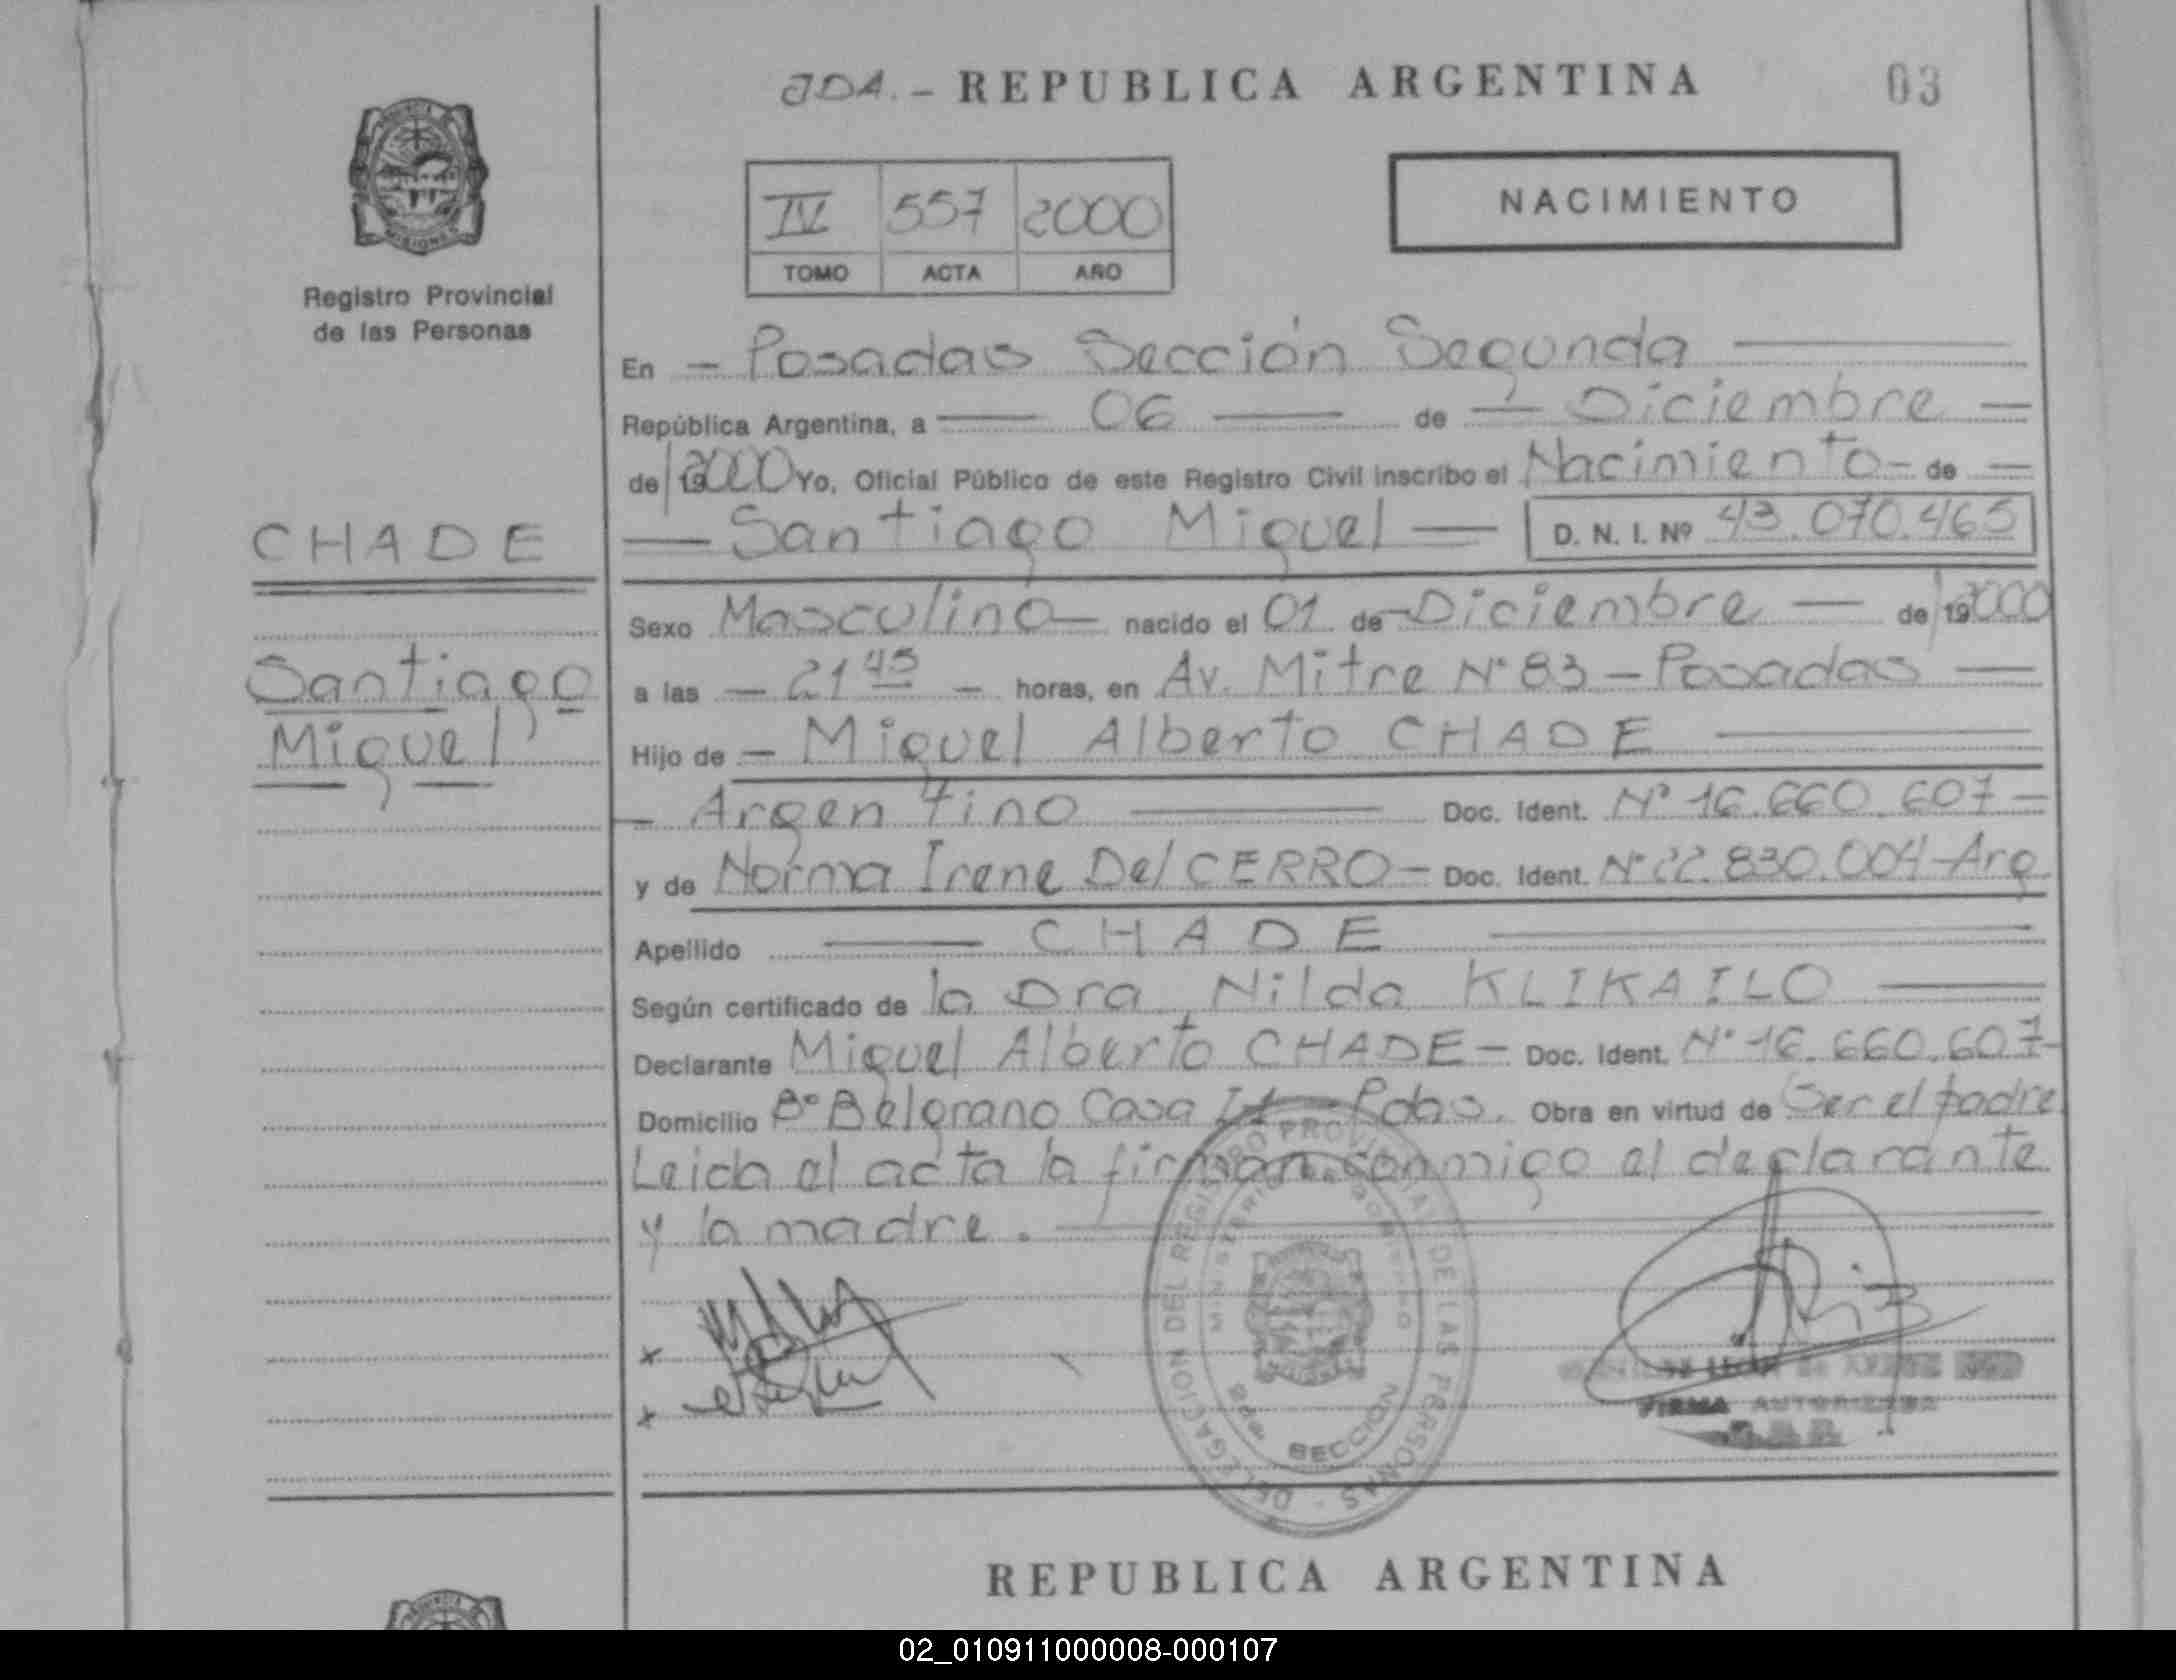 JDA. - REPUBLICA ARGENTINA 03
PROVINCIA
MISIONES
Registro Provincial
de las Personas
NACIMIENTO
IV 557 2000
TOMO ACTA AÑO
En - Posadas Sección Segunda
República Argentina, a 06 de Diciembre
de 19 2000 Yo, Oficial Público de este Registro Civil inscribo el Nacimiento - de
CHADE
Santiago Miguel D. N. I. Nº 43.070.465
Sexo Masculino nacido el 01 de Diciembre de 19 2000
Santiago
Miguel
a las - 21 45 - horas, en Av. Mitre Nº 83 - Posadas
Hijo de - Miguel Alberto CHADE
- Argentino Doc. Ident. Nº 16.660.607 -
y de Norma Irene Del CERRO - Doc. Ident. Nº 22.830.004 - Arg
Apellido CHADE
Según certificado de la Dra Nilda KLIKAILO
Declarante Miguel Alberto CHADE - Doc. Ident. Nº 16.660.607 -
Domicilio Bº Belgrano Casa - Pdas. Obra en virtud de Ser el padre
Leida el acta la firman conmigo el declarante
y la madre.
DELEGACION DEL REGISTRO PROVINCIAL DE LAS PERSONAS
MINISTERIO DE GOBIERNO
SECCION
FIRMA AUTORIZADA
REPUBLICA ARGENTINA
02_010911000008-000107